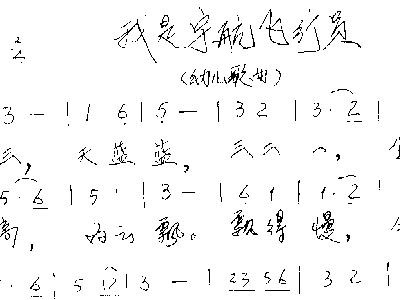 2/4
我是宇航飞行员
(幼儿歌曲)
3 - | 1 6 | 5 - | 3 2 | 3· 2 |
三, 天蓝蓝, 三二一,
5· 6 | 5 · | 3 - | 6 1 | 1· 2 |
高, 白云飘。飘得慢,
· 6 | 5 · 12 | 3 - | 23 56 | 3 2 |